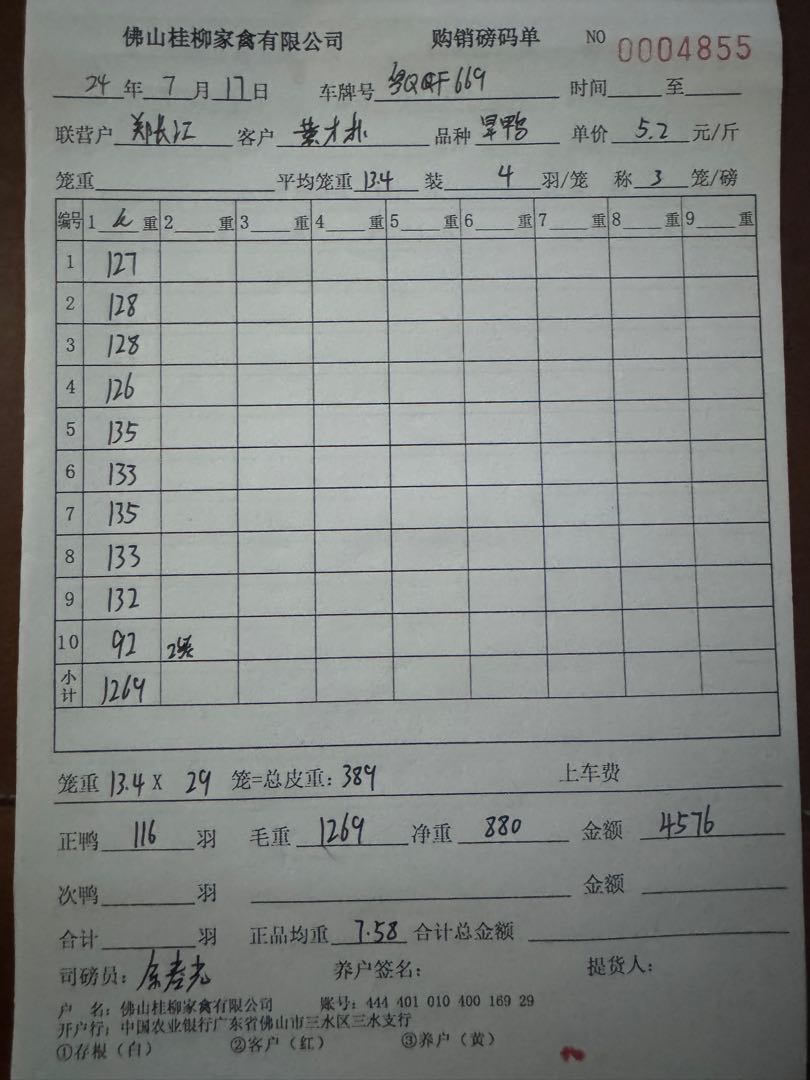 佛山桂柳家禽有限公司 购销磅码单 NO 0004855
24年7月17日 车牌号 粤QQF669 时间 至
联营户 郑长江 客户 黄才 品种 旱鸭 单价 5.2 元/斤
笼重 平均笼重 13.4 装 4 羽/笼 称 3 笼/磅
编号 1 重 2 重 3 重 4 重 5 重 6 重 7 重 8 重 9 重
1 127
2 128
3 128
4 126
5 135
6 133
7 135
8 133
9 132
10 92 2笼
小计 1269
笼重 13.4 X 29 笼=总皮重: 389 上车费
正鸭 116 羽 毛重 1269 净重 880 金额 4576
次鸭 羽 金额
合计 羽 正品均重 7.58 合计总金额
司磅员: 养户签名: 提货人:
户 名: 佛山桂柳家禽有限公司 账号: 444 401 010 400 169 29
开户行: 中国农业银行广东省佛山市三水区三水支行
①存根(白) ②客户(红) ③养户(黄)